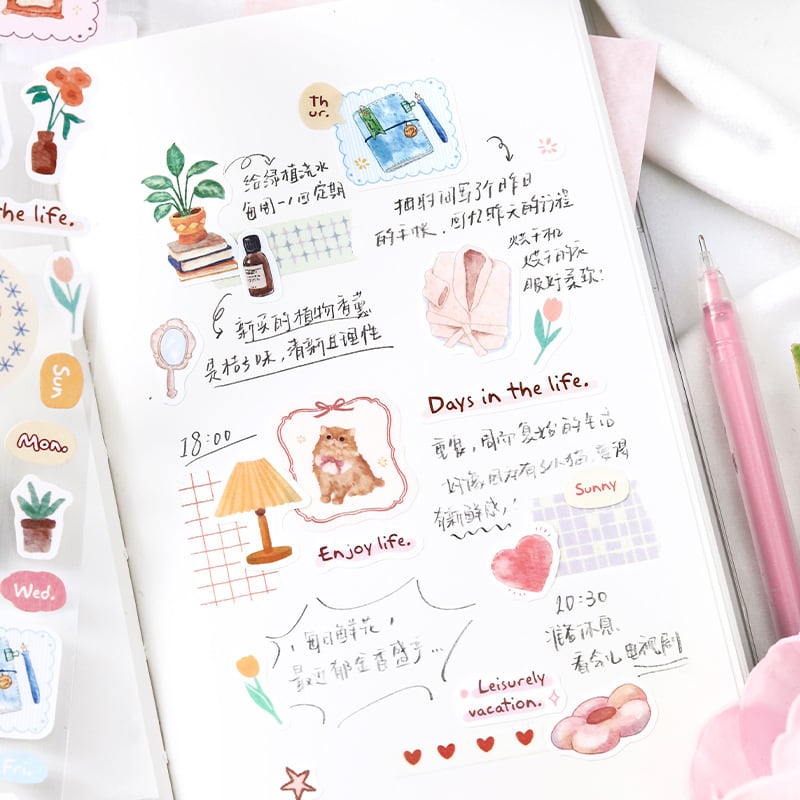 Th
ur.
给绿植浇水
每周一/四定期
抽时间写了个昨日
的手帐，回忆昨天的行程
烘干机
烘干的衣
服好柔软！
新买的植物香薰
是桔子味，清新且理性
the life.
Sun
Mon.
Wed.
Fri.
Days in the life.
18:00
重复，周而复始的生活
好像因在有
有新鲜感！
Sunny
Enjoy life.
20:30
准备休息
看会儿电视剧
每日鲜花，
最近郁金香盛季...
Leisurely
vacation.